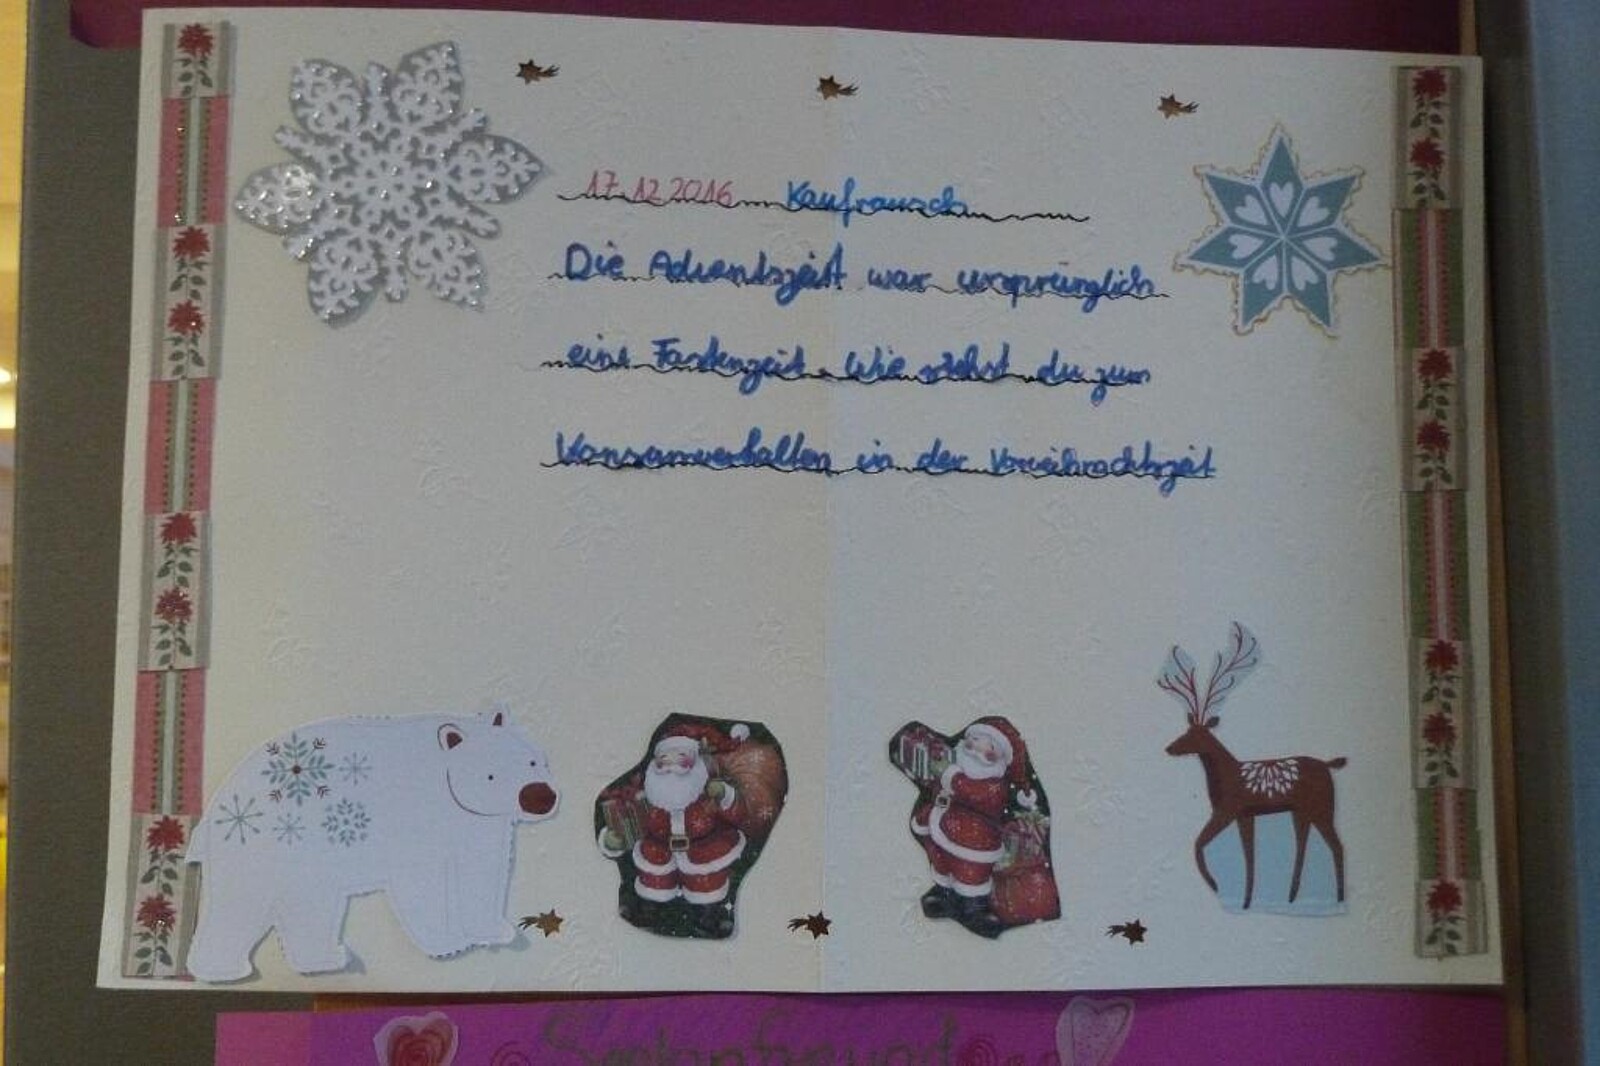 17.12.2016 Kaufrausch
Die Adventszeit war ursprünglich
eine Fastenzeit. Wie stehst du zum
Konsumverhalten in der Vorweihnachtszeit
Seelenfreund